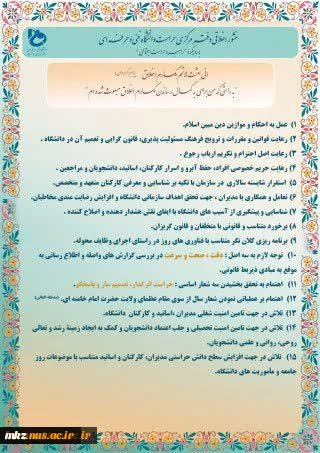 منشور اخلاقی دفتر مرکزی حراست دانشگاه فنی و حرفه ای
با رویکرد "تراز حراست اجتماعی"
انی بعثت لاتمم مکارم الاخلاق
"به راستی که من برای به کمال رساندن مکارم اخلاق مبعوث شده ام"
۱) عمل به احکام و موازین دین مبین اسلام.
۲) رعایت قوانین و مقررات و ترویج فرهنگ مسئولیت پذیری، قانون گرایی و تعمیم آن در دانشگاه .
۳) رعایت اصل احترام و تکریم ارباب رجوع .
۴) رعایت حریم خصوصی افراد، حفظ آبرو و اسرار کارکنان، اساتید، دانشجویان و مراجعین .
۵) استقرار شایسته سالاری در سازمان با تکیه بر شناسایی و معرفی کارکنان متعهد و متخصص.
۶) تعامل و همکاری با مدیران ، جهت تحقق اهداف سازمانی دانشگاه و افزایش رضایت مندی مخاطبان.
۷) شناسایی و پیشگیری از آسیب های دانشگاه با ایفای نقش هشدار دهنده و اصلاح کننده .
۸) برخورد متناسب و قانونی با متخلفان و قانون گریزان.
۹) برنامه ریزی کلان نگر متناسب با فناوری های روز در راستای اجرای وظایف محوله.
۱۰) توجه لازم به سه اصل : دقت ، صحت و سرعت در بررسی گزارش های واصله و اطلاع رسانی به
موقع به مبادی ذیربط قانونی.
۱۱) اهتمام به تحقق بخشیدن سه شعار اساسی : حراست اثرگذار، تصمیم ساز و پاسخگو.
۱۲) اهتمام بر عملیاتی نمودن شعار سال از سوی مقام عظمای ولایت حضرت امام خامنه ای.
۱۳) تلاش در جهت تامین امنیت شغلی مدیران ،اساتید و کارکنان دانشگاه.
۱۴) تلاش در جهت تامین امنیت تحصیلی و جلب اعتماد دانشجویان و کمک به ایجاد زمینۀ رشد و تعالی
روحی، روانی و علمی دانشجویان.
۱۵) تلاش در جهت افزایش سطح دانش حراستی مدیران، کارکنان و اساتید متناسب با موضوعات روز
جامعه و مأموریت های دانشگاه.
mkz.nus.ac.ir